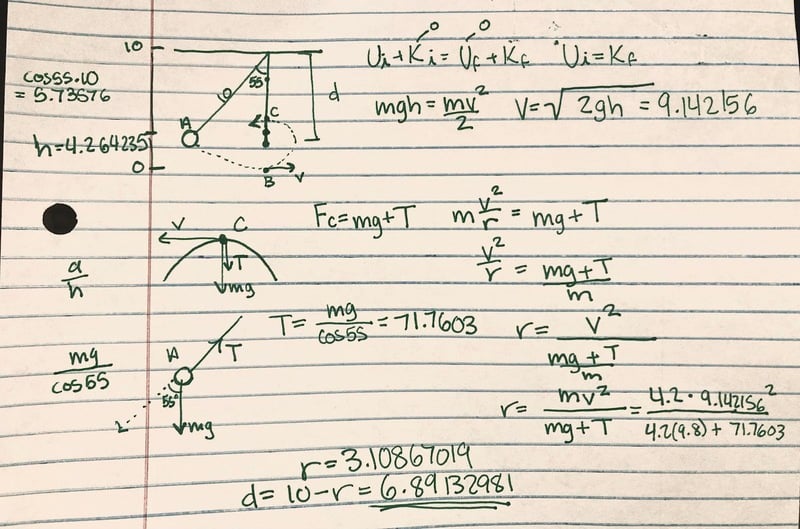 10
cos55·10
= 5.73576
h=4.264235
0
10
55
d
A
C
B
v
Ui+Ki=Uf+Kf Ui=Kf
0 0
mgh = mv²/2 V=√2gh = 9.142156
V
C
T
mg
Fc=mg+T m v²/r = mg+T
v²/r = mg+T/m
a/h
mg/cos55
A
T
55°
mg
T= mg/cos55 = 71.7603
r= v²/mg+T/m
r= mv²/mg+T = 4.2·9.142156²/4.2(9.8)+71.7603
r=3.10867019
d=10-r=6.89132981